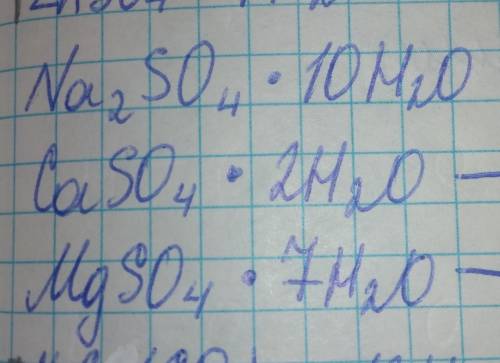 Na₂SO₄ · 10H₂O
CaSO₄ · 2H₂O —
MgSO₄ · 7H₂O —